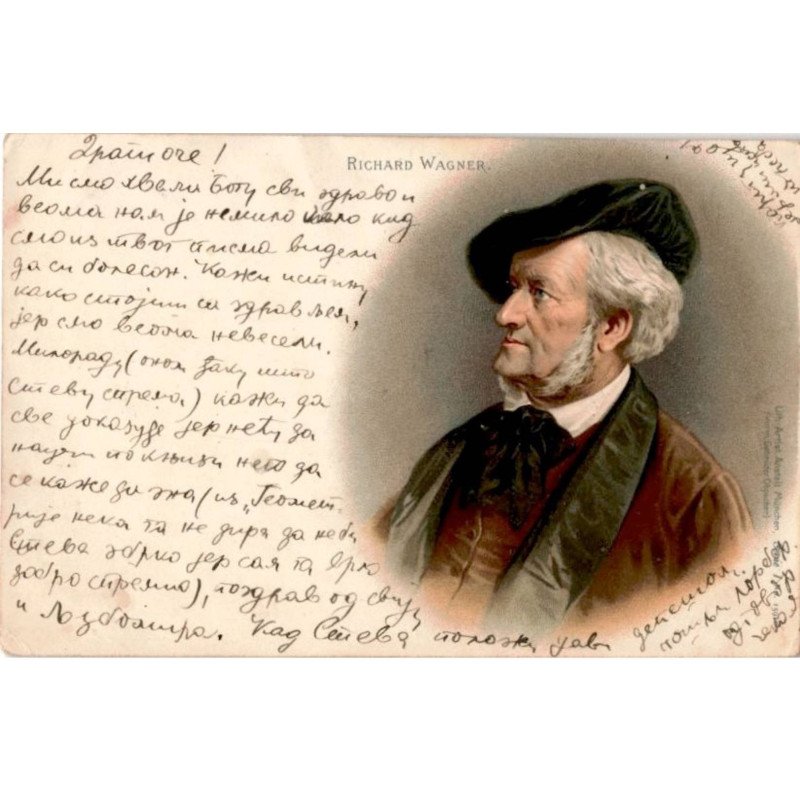 RICHARD WAGNER.
Драги оче!
Ми смо хвала Богу сви здраво и
веома нам је немило било кад
смо из твог писма видели
да си болестан. Кажи истину
како стојиш са здрављем,
јер смо веома невесели.
Милораду (оном ђаку што
Стеву спрема) кажи да
све доказује јер неће да
научи по књизи него да
се каже да зна (из „Геомет-
рије нека га не дира да не би
Стева збрко јер га ја врло
добро спремио), поздрав од свију
и Љубомира. Кад Стева положи јави
депешом.